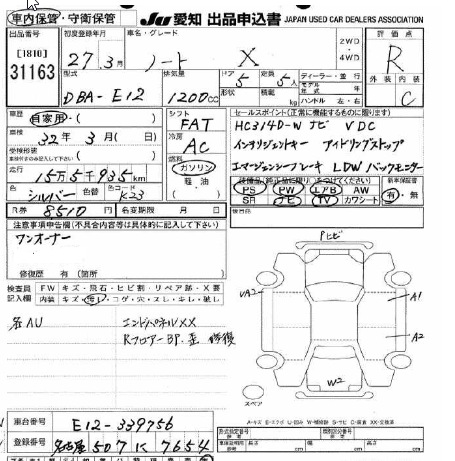 車内保管・守衛保管
JU 愛知 出品申込書 JAPAN USED CAR DEALERS ASSOCIATION
出品番号 初度登録年月 車名・グレード 評価点
[1810] 27年3月 ノート X 2WD・4WD R
31163 型式 排気量 ドア 定員 ディーラー・並行 外装 内装
DBA-E12 1200cc 5 5人 モデル年式 年 C
形状 積載 kg ハンドル 左・右
車歴 自家用 シフト セールスポイント(正常に機能するものに限ります)
FAT HC314D-W ナビ VDC
車検 32年3月( 日) 冷房 インテリジェントキー アイドリングストップ
AC エマージェンシーブレーキ LDW バックモニター
走行 15万5千935km ガソリン
軽油
シルバー 色替 色コード K23 PS PW エアB AW 有・無
R券 8510円 名変期限 月 日 SR ナビ TV カワシート
注意事項申告欄(不具合等は具体的に記入して下さい)
ワンオーナー
修復歴 有(箇所
検査員記入欄 FW キズ・飛石・ヒビ割・リペア跡・X要
内装 キズ・汚レ・コゲ・穴・スレ・キレ・破レ
各AU エンドパネルXX
Rフロアー BP.歪 修復
Pヒビ
UA2 A1
A2
W2
スペア
車台番号 E12-339756
登録番号 名古屋 507 に 7654